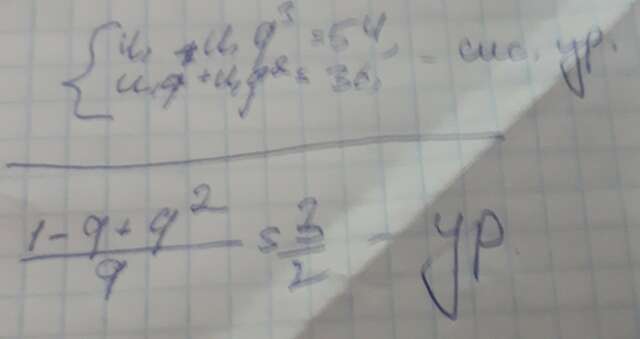 { u₁ + u₁ q³ = 54,
u₁q + u₁q² = 36, - сис. ур.
(1 - q + q²)/q = 3/2 - ур.